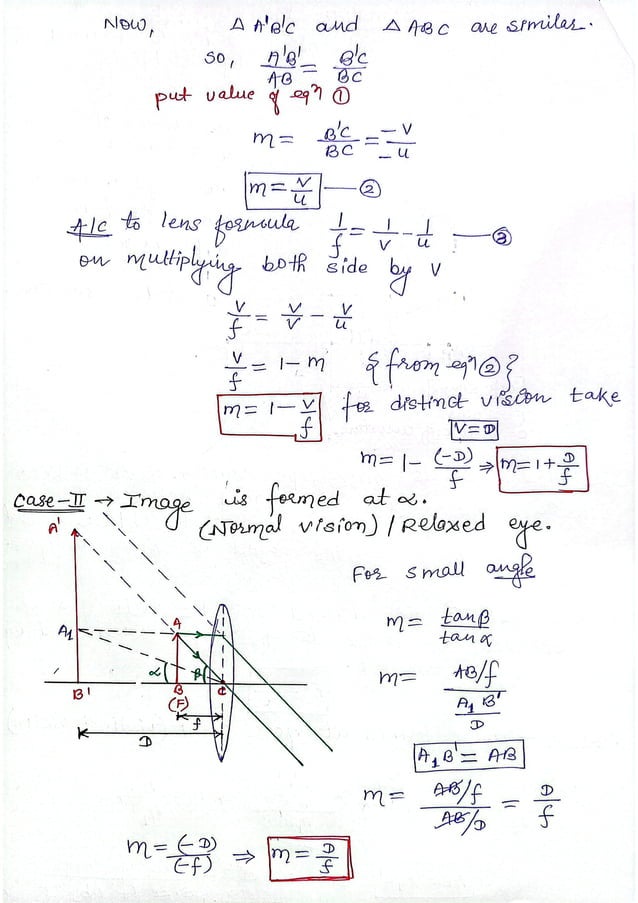 Now, △ A'B'C and △ ABC are similar.
so, A'B'/AB = B'C/BC
put value of eqⁿ ①
m = B'C/BC = -V/-u
m = V/u —②
A/C to lens formula 1/f = 1/v - 1/u —③
on multiplying both side by V
V/f = V/V - V/u
V/f = 1- m { from eqⁿ ② }
m = 1 - V/f for distinct vision take
V = D
m = 1- (-D)/f ⇒ m = 1 + D/f
Case-II → Image is formed at α.
(Normal vision) / Relaxed eye.
A'
For small angle
m = tanβ/tanα
A
A₁
m = AB/f / A₁B'/D
α β
B' B C
(F)
f
D
A₁B' = AB
m = AB/f / AB/D = D/f
m = (-D)/(-f) ⇒ m = D/f